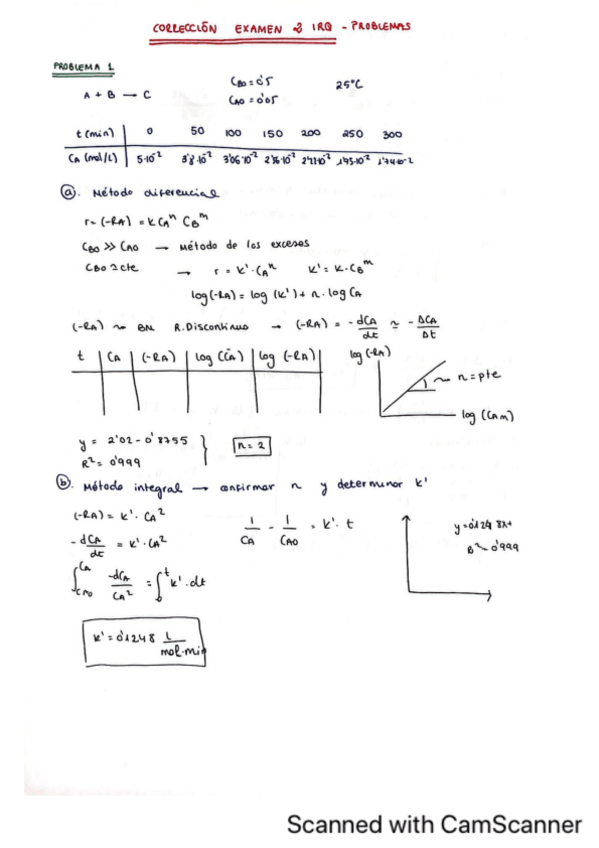 CORRECCIÓN EXAMEN 2 IRQ - PROBLEMAS
PROBLEMA 1
A + B → C
CB0 = 0'5
CA0 = 0'05
25°C
t (min) 0 50 100 150 200 250 300
CA (mol/L) 5·10⁻² 3'8·10⁻² 3'06·10⁻² 2'56·10⁻² 2'21·10⁻² 1'95·10⁻² 1'74·10⁻²
a). Método diferencial
r = (-RA) = k CAⁿ CBᵐ
CB0 >> CA0 → Método de los excesos
CB0 ≃ cte → r = k'·CAⁿ k' = k·CBᵐ
log(-RA) = log (k') + n·log CA
(-RA) ~ BM R.Discontinuo → (-RA) = - dCA/dt ≃ - ΔCA/Δt
t | CA | (-RA) | log (C̄A) | log (-RA) |
log (-RA)
n = pte
log (CAm)
y = 2'02 - 0'8755
R² = 0'999
n = 2
b). Método integral → confirmar n y determinar k'
(-RA) = k'·CA²
- dCA/dt = k'·CA²
1/CA - 1/CA0 = k'·t
y = 0'1248x+
R² 0'999
∫CA0^CA -dCA/CA² = ∫0^t k'·dt
k' = 0'1248 L/mol·min
Scanned with CamScanner